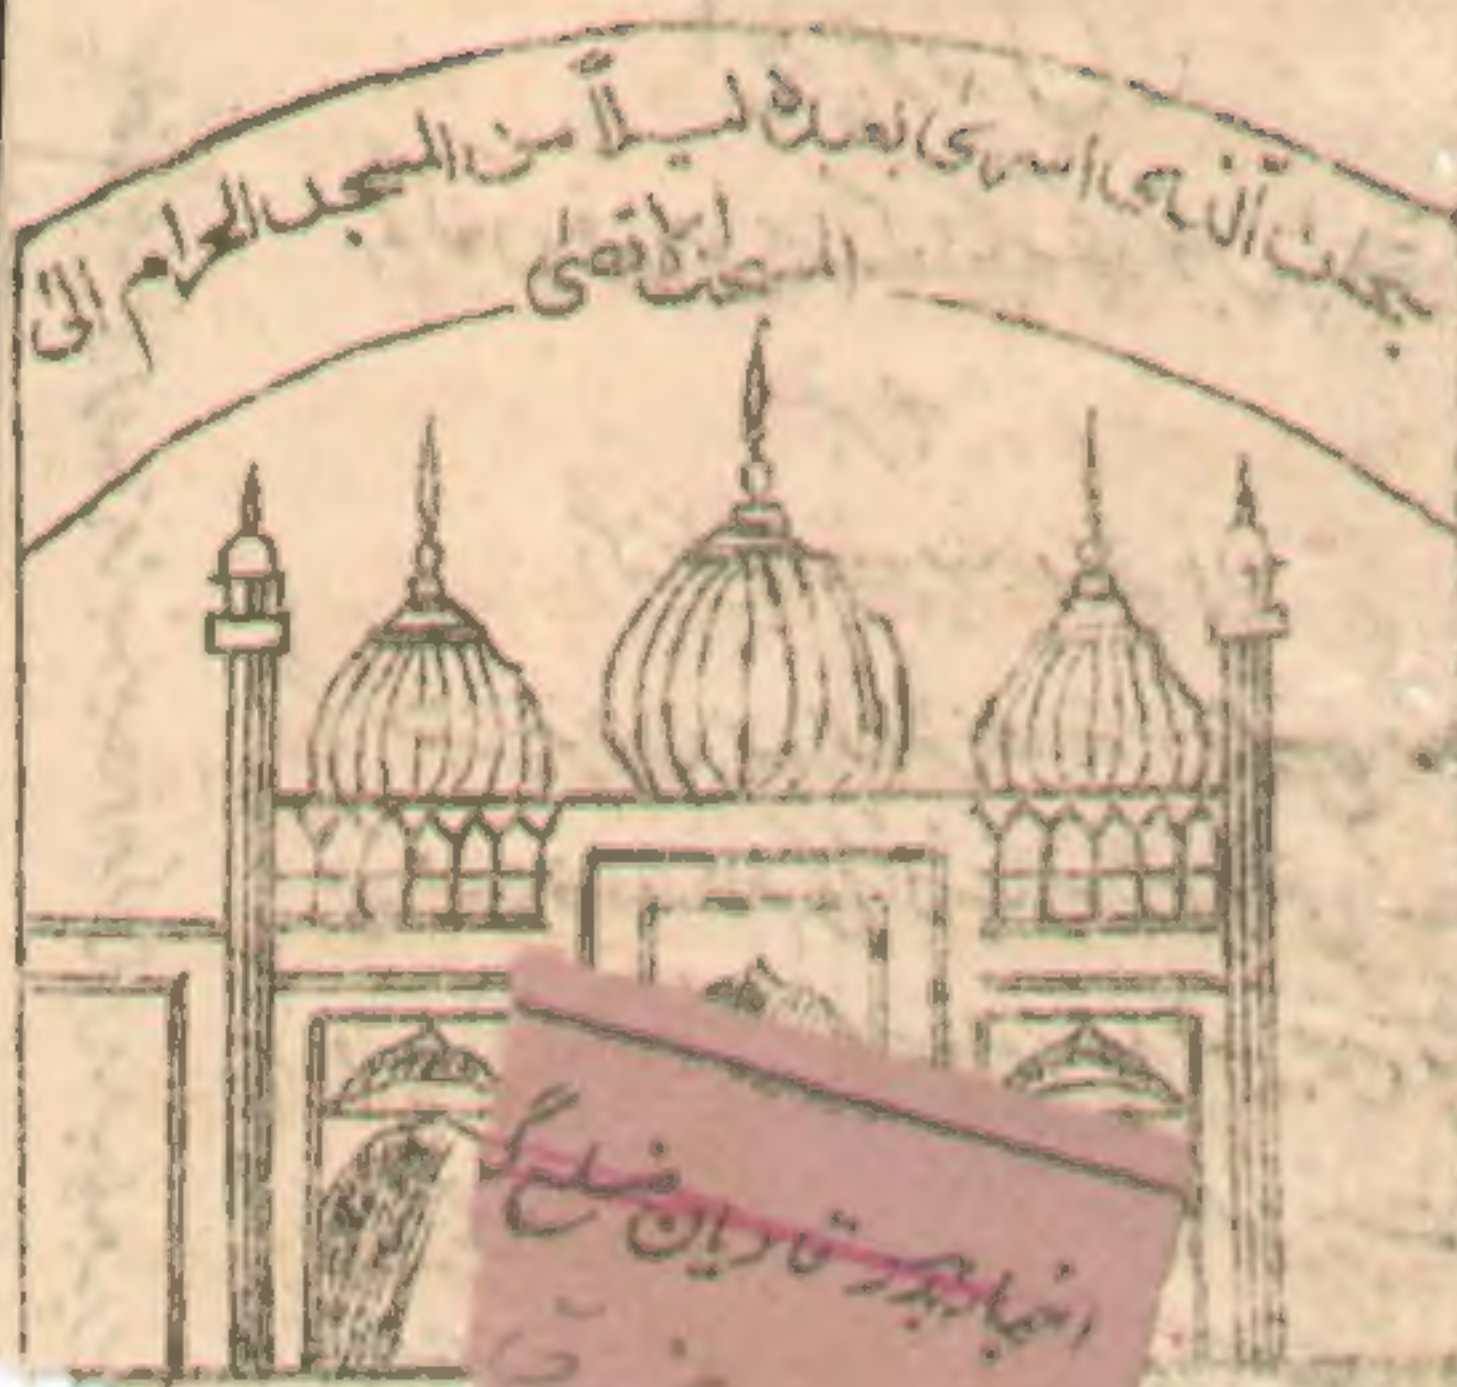 سبحٰن الّذی اسرٰی بعبدہ لیلاً من المسجد الحرام الیٰ
المسجد الاقصیٰ
اخبار بدر قادیان ضلع